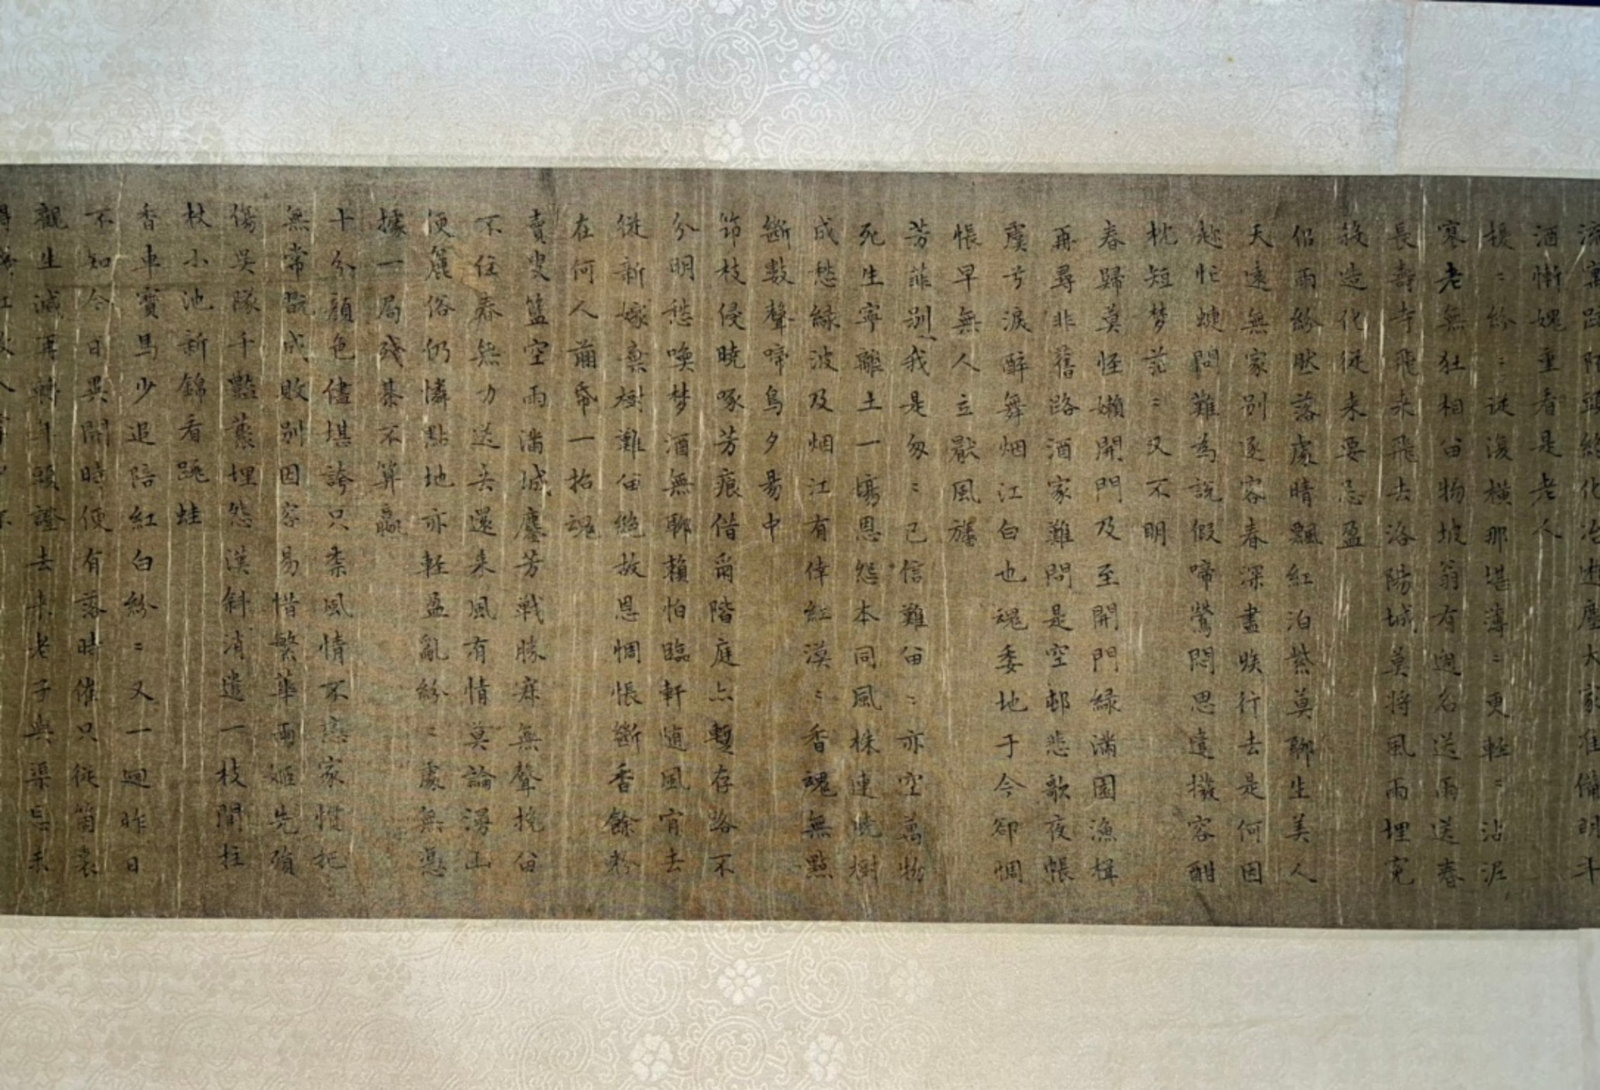 酒慚媿重看是老人
擾〻紛〻從復橫那堪薄〻更輕〻沾泥
寒老無狂相留物坡翁有過名送雨送春
長壽寺飛來飛去洛陽城莫將風雨埋冤
殺造化從來要忌盈
侶雨紛然落處晴飄紅泊紫莫聊生美人
天遠無家別逐客春深盡族行去是何因
趁忙蝶問難為說假啼鶯悶思遣撥容酣
枕短梦茫〻又不明
春歸莫怪懶開門及至開門綠滿園漁楫
再尋非舊路酒家難問是空邨悲歌夜帳
虞兮淚醉舞烟江白也魂委地于今卻惆
悵早無人立厭風旛
芳菲別我是匆〻已信難留〻亦空萬物
死生寧離土一場恩怨本同風株連曉樹
成愁綠波及烟江有倖紅漠〻香魂無點
斷數聲啼鳥夕陽中
節枝侵曉啄芳痕借爾階庭亦暫存路不
分明愁喚梦酒無聊賴怕臨軒隨風肯去
從新嫁棄樹難留絕故恩惆悵斷香餘粉
在何人剪帋一招魂
賣叟籃空雨滿城鏖芳戰勝寂無聲挽留
不住春無力送去還來風有情莫論漫山
便麤俗仍憐點地亦輕盈亂紛〻處無憑
據一局殘棊不算贏
十分顏色儘堪誇只柰風情不戀家慣把
無常翫成敗別因容易惜繁華兩姬先殞
傷吳隊千艷叢埋怨漢斜消遣一枝閒拄
杖小池新錦看跳蛙
香車寶馬少追陪紅白紛〻又一迴昨日
不知今日異開時便有落時催只從箇裏
觀生滅再轉年頭證去來老子與渠忘未